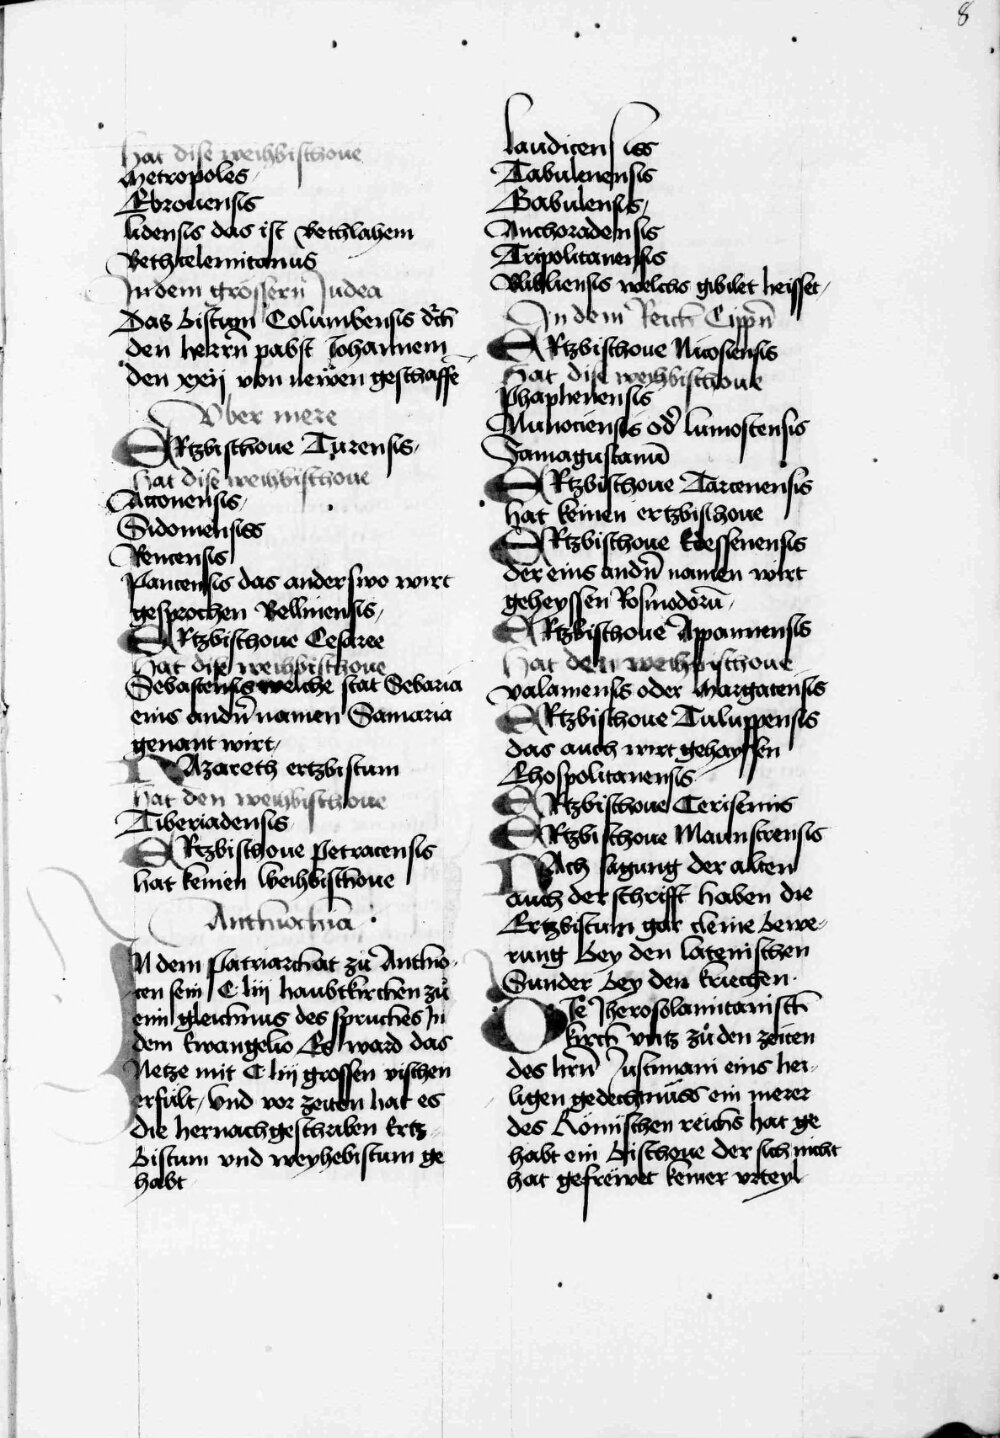 8
hat dise weihbischoue
Metropoles
Ebronensis
lidensis das ist Bethlahem
Bethlelemitanus
In dem grössern Judea
Das Bistum Columbensis dch
den herrn pabst Johannem
den xxij von newen geschaffē
Vber mere
ERtzbischoue Turensis
hat dise weihbischoue
Acconensis
Sidoniensiss
Rencensis
Pancensis das anderswo wirt
gesprochen Belliniensis
ERtzbischoue Cesaree
hat dise weihbischoue
Sebastensis welche stat Sebaria
eins andn namen Samaria
genant wirt
NAzareth ertzbistum
hat den weihbischoue
Tiberiadensis
ERtzbischoue Petracensis
hat keinen weihbischoue
Anthiochia
IN dem Patriarchat zů Anthio-
cen sein C liij haubtkirchen zů
eim gleichnus des spruches In
dem Ewangelio Es ward das
Netze mit C liij grossen vischen
erfült, vnd vor zeiten hat es
die hernachgeschriben Ertz
Bistum vnd weyhebistum ge
habt
laudicensiss
Tabulenensis
Gabulensis
Anthoradensis
Tripolitanensis
Bibliensis welchs gibilet heisset
In dem Reich Cippn
ERtzbischoue Nicosiensis
hat dise weihbischoue
Phaphenensis
Munociensis od lumoscensis
Famagustanū
ERtzbischoue Tarcenensis
hat keinen ertzbischoue
ERtzbischoue Edessenensis
der eins andn namen wirt
geheyssen Rosmodorū
ERtzbischoue Appamiensis
hat den weihbischoue
valaniensis oder Margatensis
ERtzbischoue Tuluppensis
das auch wirt gehayssen
Ehospolitanensis
ERtzbischoue Cerisenus
ERtzbischoue Maunstrensis
NAch sagung der alten
auch der schrifft haben die
Ertzbistum gar cleine bewe-
rung Bey den latenischen
Sunder bey den kriechen
DIe Jherosolamitanisch
kirch vntz zů den zeiten
des hrn Justiniani eins hei-
ligen gedechtnüss ein merer
des Römischen reichs hat ge
habt ein Bischoue der sich nicht
hat gefrewet keiner vrteyl